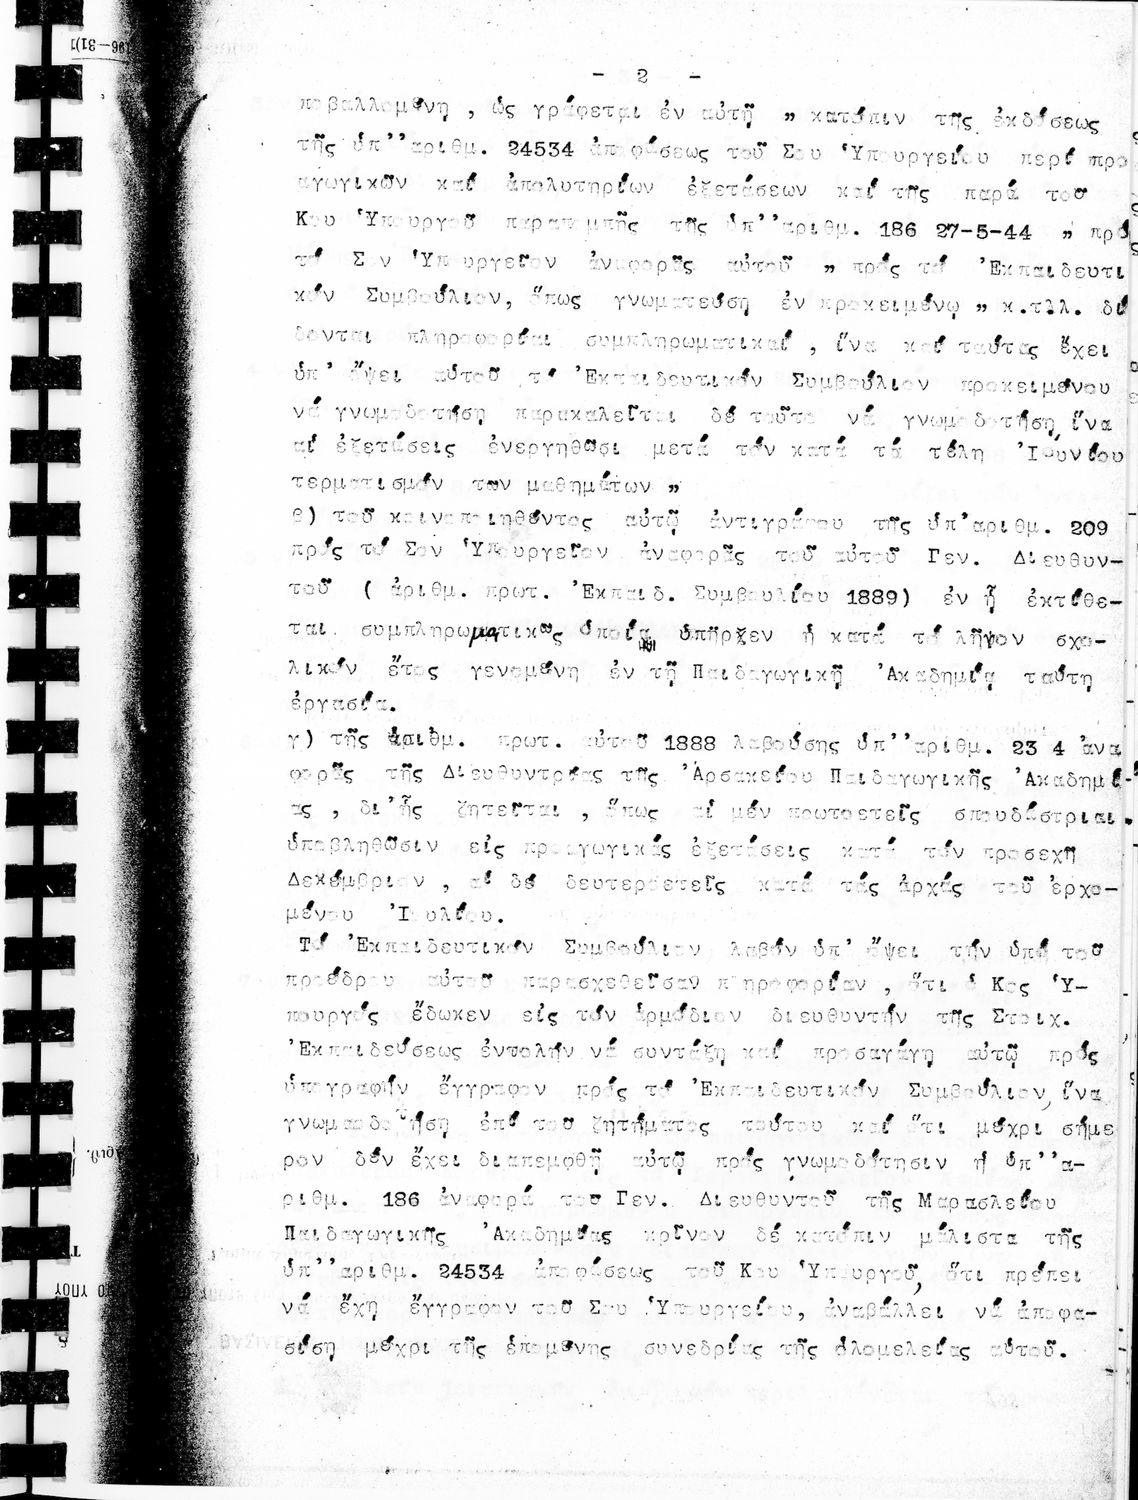 - 2 -
ποβαλλομένη , ὡς γράφεται ἐν αὐτῇ " κατόπιν τῆς ἐκδόσεως
τῆς ὑπ''αριθμ. 24534 ἀποφάσεως τοῦ Σου Ὑπουργείου περί προ
αγωγικῶν καί ἀπολυτηρίων ἐξετάσεων καί τῆς παρά τοῦ
Κου Ὑπουργοῦ παραπομπῆς τῆς ὑπ''αριθμ. 186 27-5-44 " πρός
τό Σον Ὑπουργεῖον ἀναφορᾶς αὐτοῦ " πρός τό Ἐκπαιδευτι
κόν Συμβούλιον, ὅπως γνωματεύσῃ ἐν προκειμένῳ " κ.τλλ. δί
δονται πληροφορίαι συμπληρωματικαί , ἵνα καί ταύτας ἔχει
ὑπ' ὄψει αὐτοῦ τό Ἐκπαιδευτικόν Συμβούλιον προκειμένου
νά γνωμοδοτήσῃ παρακαλεῖται δέ τοῦτο νά γνωμοδοτήσῃ ἵνα
αἱ ἐξετάσεις ἐνεργηθῶσι μετά τόν κατά τά τέλη Ἰουνίου
τερματισμόν των μαθημάτων "
β) τοῦ κοινοποιηθέντος αὐτῷ ἀντιγράφου τῆς ὑπ'αριθμ. 209
πρός τό Σον Ὑπουργεῖον ἀναφορᾶς τοῦ αὐτοῦ Γεν. Διευθυν-
τοῦ ( ἀριθμ. πρωτ. Ἐκπαιδ. Συμβουλίου 1889) ἐν ᾗ ἐκτίθε-
ται συμπληρωματικῶς ὁποία ὑπῆρξεν ἡ κατά τό λῆγον σχο-
λικόν ἔτος γενομένη ἐν τῇ Παιδαγωγικῇ Ἀκαδημίᾳ ταύτῃ
ἐργασία.
γ) τῆς ἀριθμ. πρωτ. αὐτοῦ 1888 λαβούσης ὑπ''αριθμ. 23 4 ἀνα
φορᾶς τῆς Διευθυντρίας τῆς Ἀρσακείου Παιδαγωγικῆς Ἀκαδημί-
ας , δι'ἧς ζητεῖται , ὅπως αἱ μέν πρωτοετεῖς σπουδάστριαι
ὑποβληθῶσιν εἰς προαγωγικάς ἐξετάσεις κατά τόν προσεχῆ
Δεκέμβριον , αἱ δέ δευτεροετεῖς κατά τάς ἀρχάς τοῦ ἐρχο-
μένου Ἰουλίου.
Τό Ἐκπαιδευτικόν Συμβούλιον λαβόν ὑπ' ὄψει τήν ὑπό τοῦ
προέδρου αὐτοῦ παρασχεθεῖσαν πληροφορίαν , ὅτι ὁ Κος Ὑ-
πουργός ἔδωκεν εἰς τόν ἁρμόδιον διευθυντήν τῆς Στοιχ.
Ἐκπαιδεύσεως ἐντολήν νά συντάξῃ καί προσαγάγῃ αὐτῷ πρός
ὑπογραφήν ἔγγραφον πρός τό Ἐκπαιδευτικόν Συμβούλιον, ἵνα
γνωμοδοτήσῃ ἐπί τοῦ ζητήματος τούτου καί ὅτι μέχρι σήμε
ρον δέν ἔχει διαπεμφθῆ αὐτῷ πρός γνωμοδότησιν ἡ ὑπ''α-
ριθμ. 186 ἀναφορά του Γεν. Διευθυντοῦ τῆς Μαρασλείου
Παιδαγωγικῆς Ἀκαδημίας κρῖνον δέ κατόπιν μάλιστα τῆς
ὑπ''αριθμ. 24534 ἀποφάσεως τοῦ Κου Ὑπουργοῦ, ὅτι πρέπει
νά ἔχῃ ἔγγραφον τοῦ Σου Ὑπουργείου, ἀναβάλλει νά ἀποφα-
σίσῃ μέχρι τῆς ἑπομένης συνεδρίας τῆς ὁλομελείας αὐτοῦ.